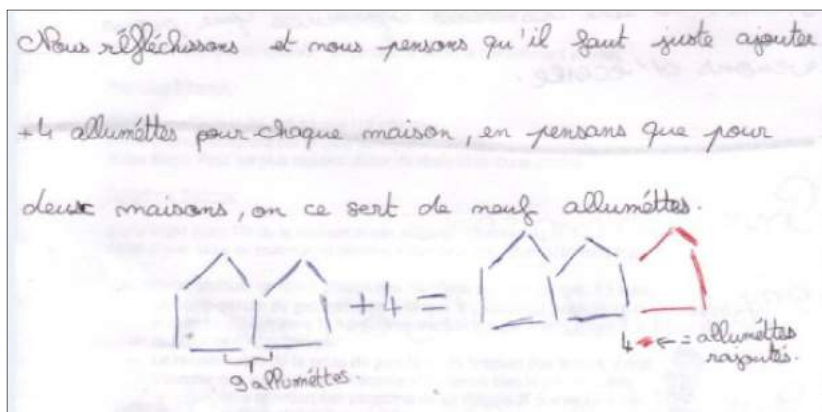 Nous réfléchissons et nous pensons qu'il faut juste ajouter
+4 alluméttes pour chaque maison, en pensans que pour
deux maisons, on ce sert de neuf alluméttes.
+4=
4 ← = alluméttes
rajoutés.
9 alluméttes.